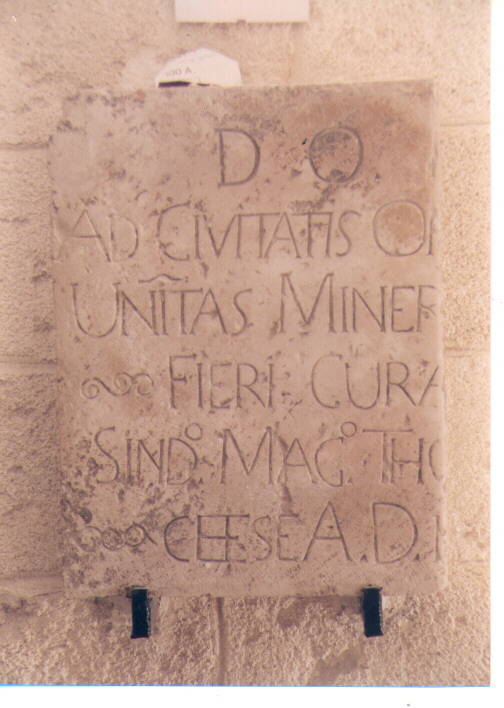 D O
AD CIVITATIS O
UNĨTAS MINER
FIERI CURA
SIND° MAG° THO
A.D.